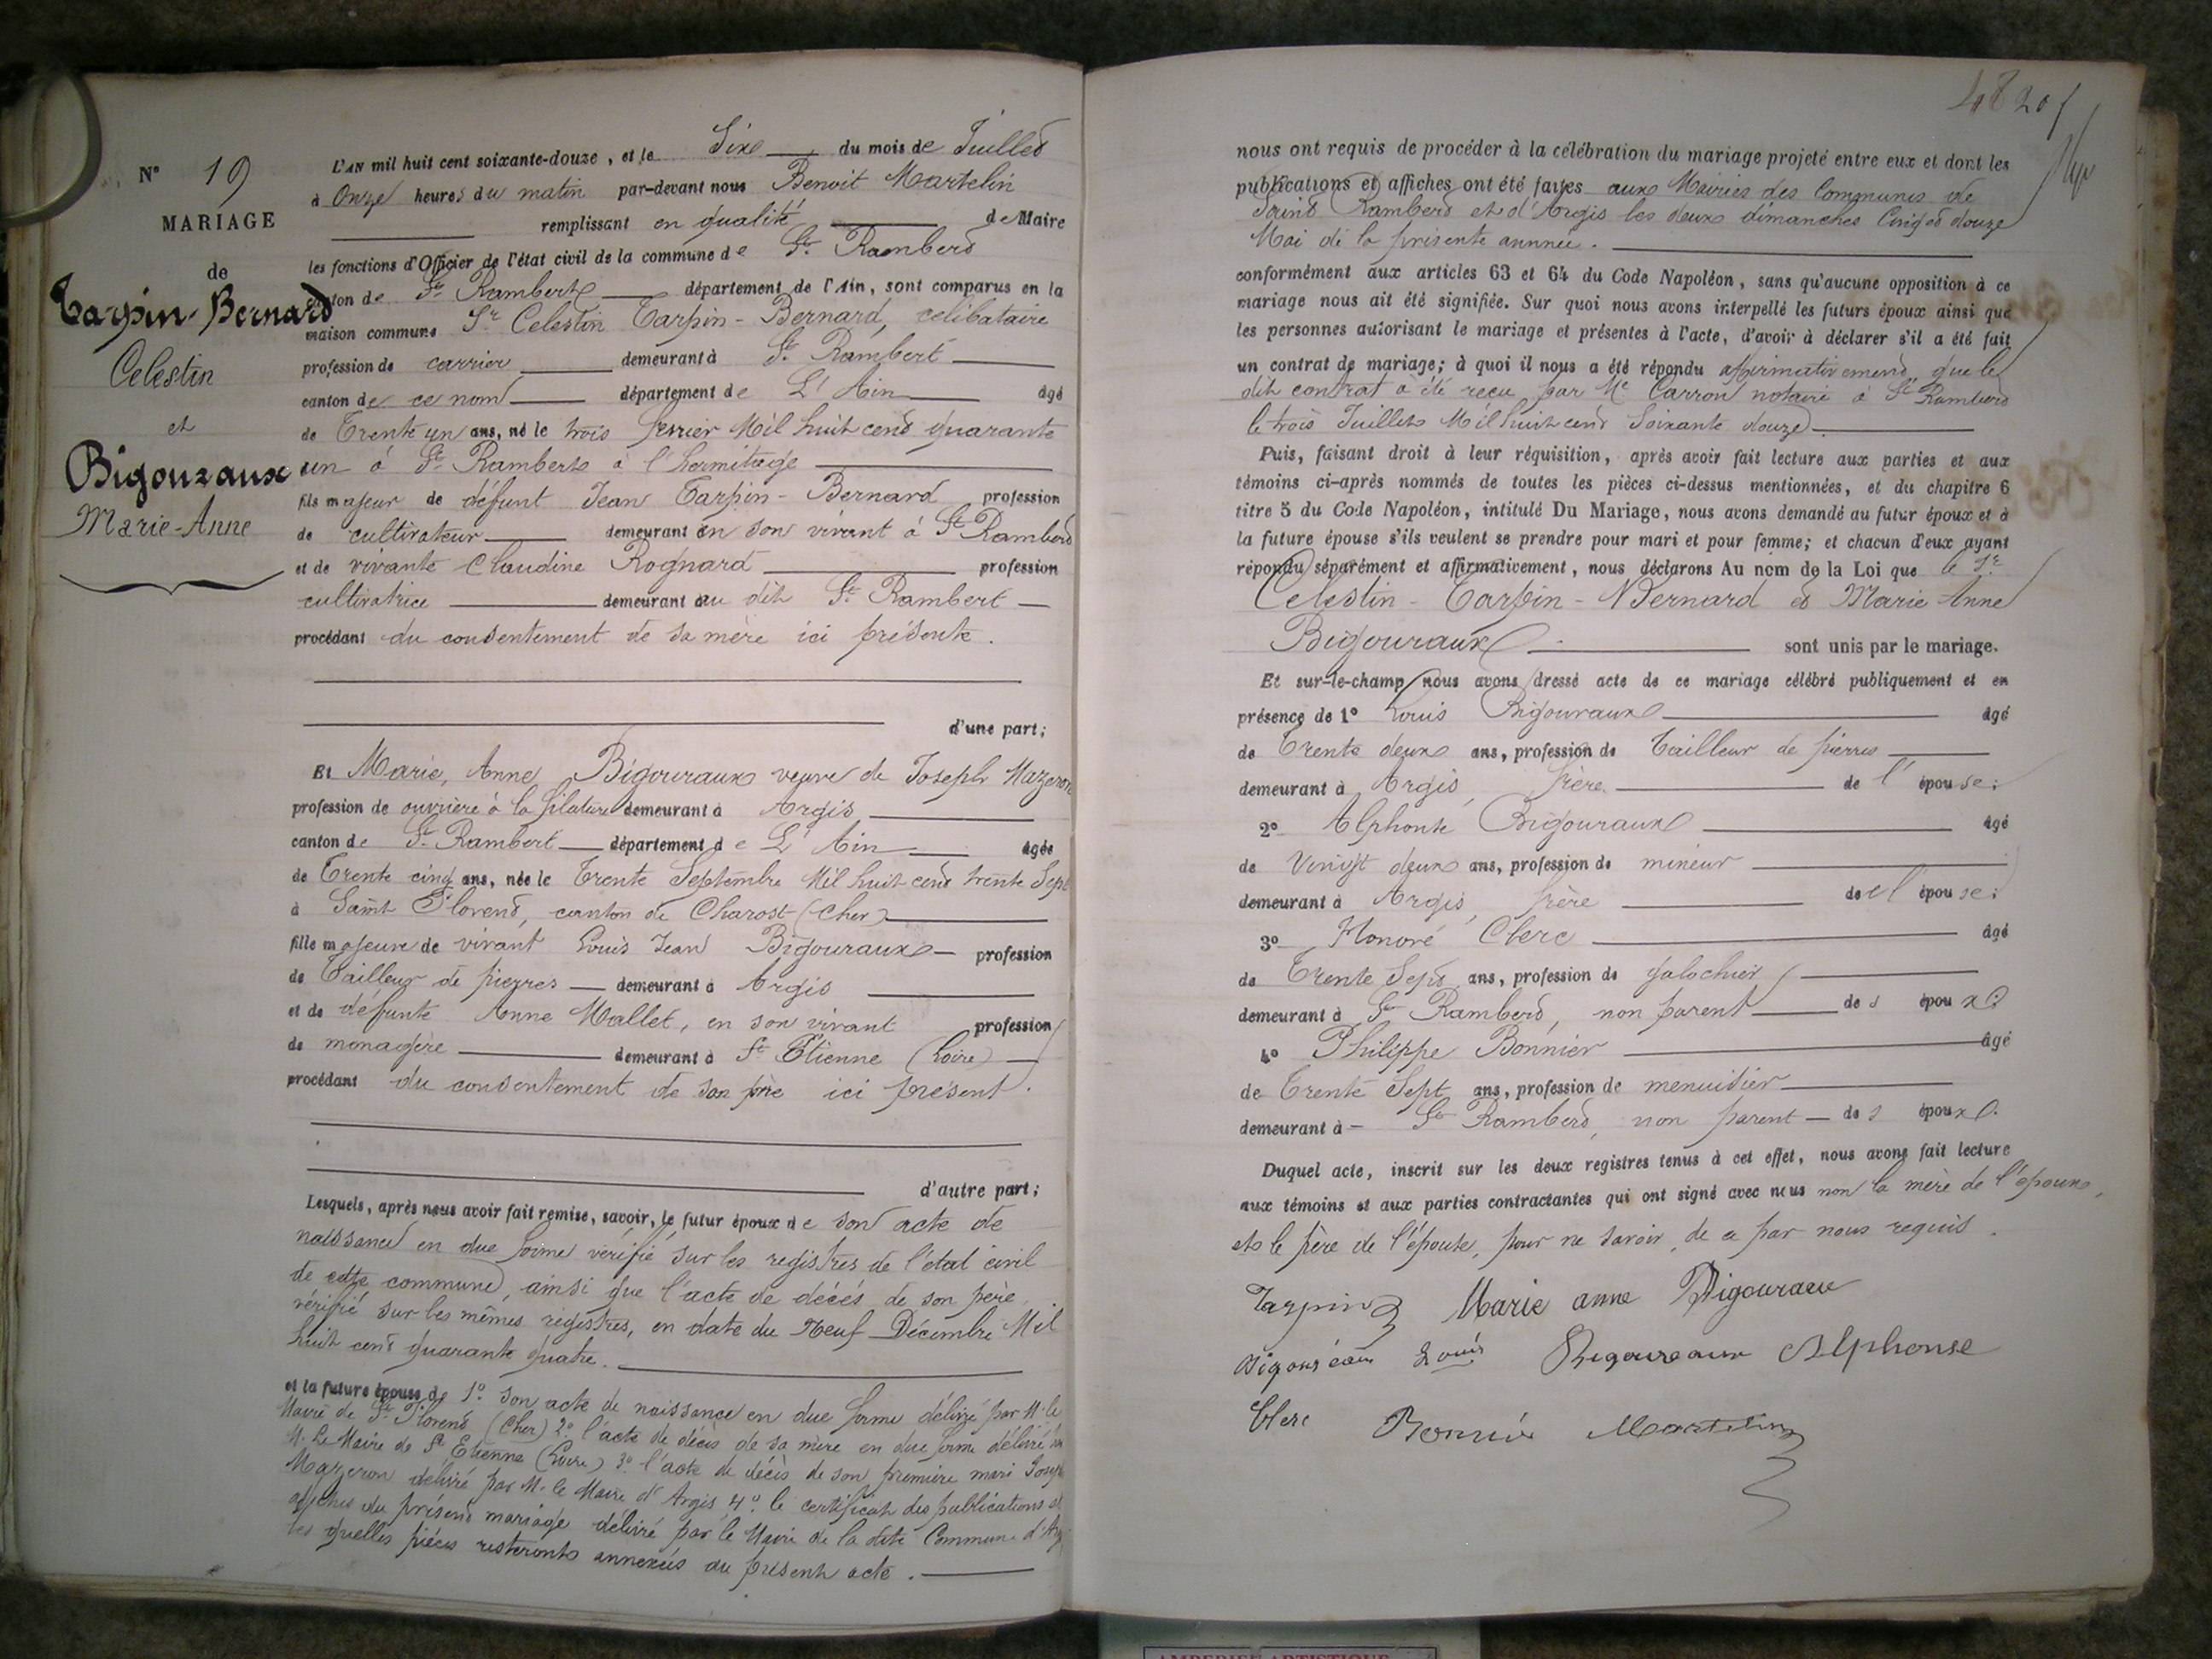 N° 19
MARIAGE
de
Tarpin-Bernard
Celestin
et
Bigouraux
Marie-Anne
L'AN mil huit cent soixante-douze, et le Six du mois de Juillet
à Onze heures du matin par-devant nous Benoit Martelin
remplissant en qualité de Maire
les fonctions d'Officier de l'état civil de la commune de St Rambert
canton de St Rambert département de l'Ain, sont comparus en la
maison commune Sr Celestin Tarpin-Bernard, celibataire
profession de carrier demeurant à St Rambert
canton de ce nom département de L'Ain âgé
de Trente un ans, né le trois fevrier Mil huit cent quarante
un à St Rambert à l'hermitage
fils majeur de défunt Jean Tarpin-Bernard profession
de cultivateur demeurant en son vivant à St Rambert
et de vivante Claudine Rognard profession
cultivatrice demeurant au dit St Rambert
procédant du consentement de sa mère ici présente.
d'une part;
Et Marie, Anne Bigouraux veuve de Joseph Mazeron
profession de ouvrière à la filature demeurant à Argis
canton de St Rambert département de L'Ain âgée
de Trente cinq ans, née le Trente Septembre Mil huit cent trente Sept
à Saint Florent, canton de Charost (Cher)
fille majeure de vivant Louis Jean Bigouraux profession
de Tailleur de pierres demeurant à Argis
et de défunte Anne Mallet, en son vivant profession
de menagère demeurant à St Etienne (Loire)
procédant du consentement de son père ici present.
d'autre part;
Lesquels, après nous avoir fait remise, savoir, le futur époux de son acte de
naissance en due forme vérifié sur les registres de l'état civil
de cette commune, ainsi que l'acte de décès de son père,
vérifié sur les mêmes registres, en date du Neuf Décembre Mil
huit cent quarante quatre.
et la future épouse de 1° son acte de naissance en due forme délivré par M. le
Maire de St Florent (Cher) 2° l'acte de décès de sa mère en due forme délivré
M. Le Maire de St Etienne (Loire) 3° l'acte de décès de son première mari Joseph
Mazeron délivré par M. le Maire d'Argis, 4° le certificat des publications et
affiches du présent mariage délivré par le Maire de la dite Commune d'Argis
les quelles pièces resteronts annexées au présent acte.
nous ont requis de procéder à la célébration du mariage projeté entre eux et dont les
publications et affiches ont été faites aux Mairies des Communes de
Saint Rambert et d'Argis les deux dimanches Cinq et douze
Mai de la présente annnée.
conformément aux articles 63 et 64 du Code Napoléon, sans qu'aucune opposition à ce
mariage nous ait été signifiée. Sur quoi nous avons interpellé les futurs époux ainsi que
les personnes autorisant le mariage et présentes à l'acte, d'avoir à déclarer s'il a été fait
un contrat de mariage; à quoi il nous a été répondu affirmativement, que le
dit contrat a été reçu par Me Carron notaire à St Rambert
le trois Juillet Mil huit cent Soixante douze.
Puis, faisant droit à leur réquisition, après avoir fait lecture aux parties et aux
témoins ci-après nommés de toutes les pièces ci-dessus mentionnées, et du chapitre 6
titre 5 du Code Napoléon, intitulé Du Mariage, nous avons demandé au futur époux et à
la future épouse s'ils veulent se prendre pour mari et pour femme; et chacun d'eux ayant
répondu séparément et affirmativement, nous déclarons Au nom de la Loi que le Sr
Celestin-Tarpin-Bernard et Marie Anne
Bigouraux sont unis par le mariage.
Et sur-le-champ nous avons dressé acte de ce mariage célébré publiquement et en
présence de 1° Louis Bigouraux âgé
de Trente deux ans, profession de Tailleur de pierres
demeurant à Argis, frère de l'épouse;
2° Alphonse Bigouraux âgé
de Vingt deux ans, profession de mineur
demeurant à Argis, frère de l'épouse;
3° Honoré Clerc âgé
de Trente Sept ans, profession de galochier
demeurant à St Rambert, non parent des époux;
4° Philippe Bonnier âgé
de Trente Sept ans, profession de menuisier
demeurant à St Rambert, non parent des époux.
Duquel acte, inscrit sur les deux registres tenus à cet effet, nous avons fait lecture
aux témoins et aux parties contractantes qui ont signé avec nous non la mère de l'époux,
et le père de l'épouse, pour ne savoir, de ce par nous requis.
Tarpin Marie anne Bigouraux
Bigouraux Louis Bigouraux Alphonse
Clerc Bonnier Martelin